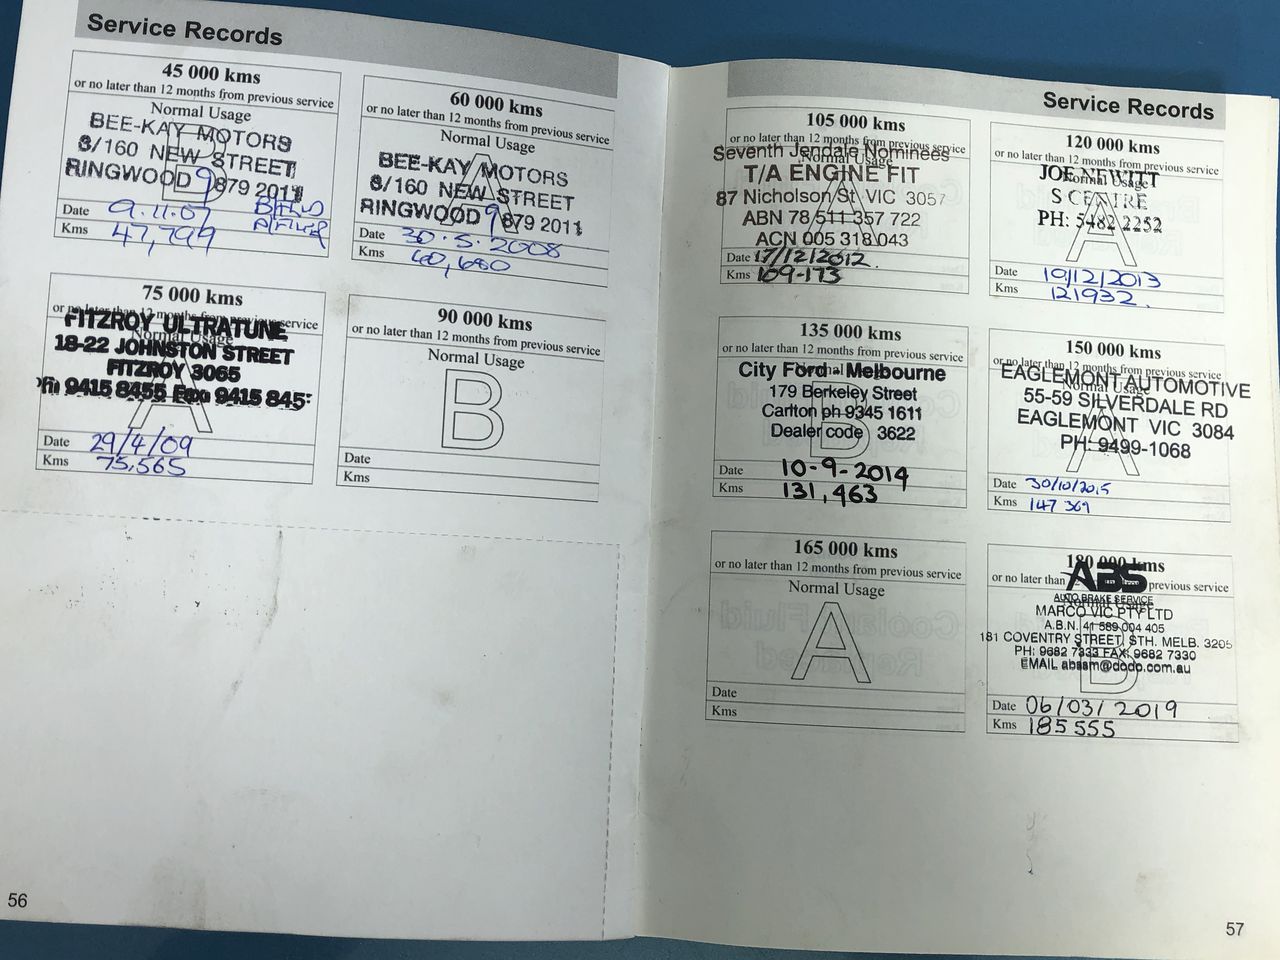 Service Records
45 000 kms
or no later than 12 months from previous service
Normal Usage
BEE-KAY MOTORS
6/160 NEW STREET
RINGWOOD 9879 2011
B
Date 9.11.07
Kms 47,799
60 000 kms
or no later than 12 months from previous service
Normal Usage
A
BEE-KAY MOTORS
6/160 NEW STREET
RINGWOOD 9879 2011
Date 30.5.2008
Kms 60,680
75 000 kms
or no later than 12 months from previous service
Normal Usage
FITZROY ULTRATUNE
18-22 JOHNSTON STREET
FITZROY 3065
Ph 9415 8455 Fax 9415 845
A
Date 29/4/09
Kms 75,565
90 000 kms
or no later than 12 months from previous service
Normal Usage
B
Date
Kms
56
Service Records
105 000 kms
or no later than 12 months from previous service
Normal Usage
Seventh Jendale Nominees
T/A ENGINE FIT
87 Nicholson St VIC 3057
ABN 78 511 357 722
ACN 005 318 043
A
Date 17/12/2012.
Kms 109-173
120 000 kms
or no later than 12 months from previous service
Normal Usage
JOE NEWITT
S CENTRE
PH: 5482 2252
A
Date 19/12/2013
Kms 121932.
135 000 kms
or no later than 12 months from previous service
Normal Usage
City Ford - Melbourne
179 Berkeley Street
Carlton ph 9345 1611
Dealer code 3622
B
Date 10-9-2014
Kms 131,463
150 000 kms
or no later than 12 months from previous service
Normal Usage
EAGLEMONT AUTOMOTIVE
55-59 SILVERDALE RD
EAGLEMONT VIC 3084
PH: 9499-1068
A
Date 30/10/2015
Kms 147 369
165 000 kms
or no later than 12 months from previous service
Normal Usage
A
Date
Kms
180 000 kms
or no later than 12 months from previous service
Normal Usage
ABS
AUTO BRAKE SERVICE
MARCO VIC PTY LTD
A.B.N. 41 589 004 405
181 COVENTRY STREET, STH. MELB. 3205
PH: 9682 7333 FAX: 9682 7330
EMAIL abssm@dodo.com.au
B
Date 06/03/2019
Kms 185555
57